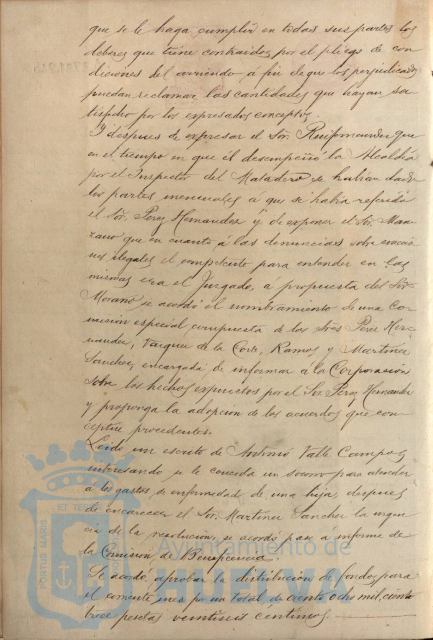 que se le haga cumplir en todas sus partes los
deberes que tiene contraidos por el pliego de con
diciones del arriendo a fin de que los perjudicados
puedan reclamar las cantidades que hayan sa
tisfecho por los expresados conceptos.
Y despues de expresar el Sor.
en el tiempo en que el desempeñó la Alcaldia
por el Inspector del Matadero se habian dado
los partes mensuales a que se habia referido
el Sor. Perez Hernandez y de exponer el Sor. Man
zano que en cuanto á las denuncias sobre exaccio
nes ilegales el competente para entender en las
mismas era el Juzgado, a propuesta del Sor.
Morano se acordó el nombramiento de una Co
mision especial compuesta de los Sres Perez Her
nandez, Vazquez de la Corte, Ramos y Martinez
Sanchez, encargada de informar a la Corporacion
sobre los hechos expuestos por el Sor. Perez Hernandez
y proponga la adopcion de los acuerdos que con
ceptue procedentes.
Leido un escrito de Antonio Valle Campos
interesando se le conceda un socorro para atender
a los gastos de enfermedad de una hija, despues
de encarecer el Sor. Martinez Sanchez la urgen
cia de la resolucion, se acordó pase á informe de
la Comision de Beneficencia.
Se acordó aprobar la distribucion de fondos para
el corriente mes por un total de ciento ocho mil ciento
trece pesetas veintiseis centimos.
PORTUS MARIS ET TE
Ayuntamiento de